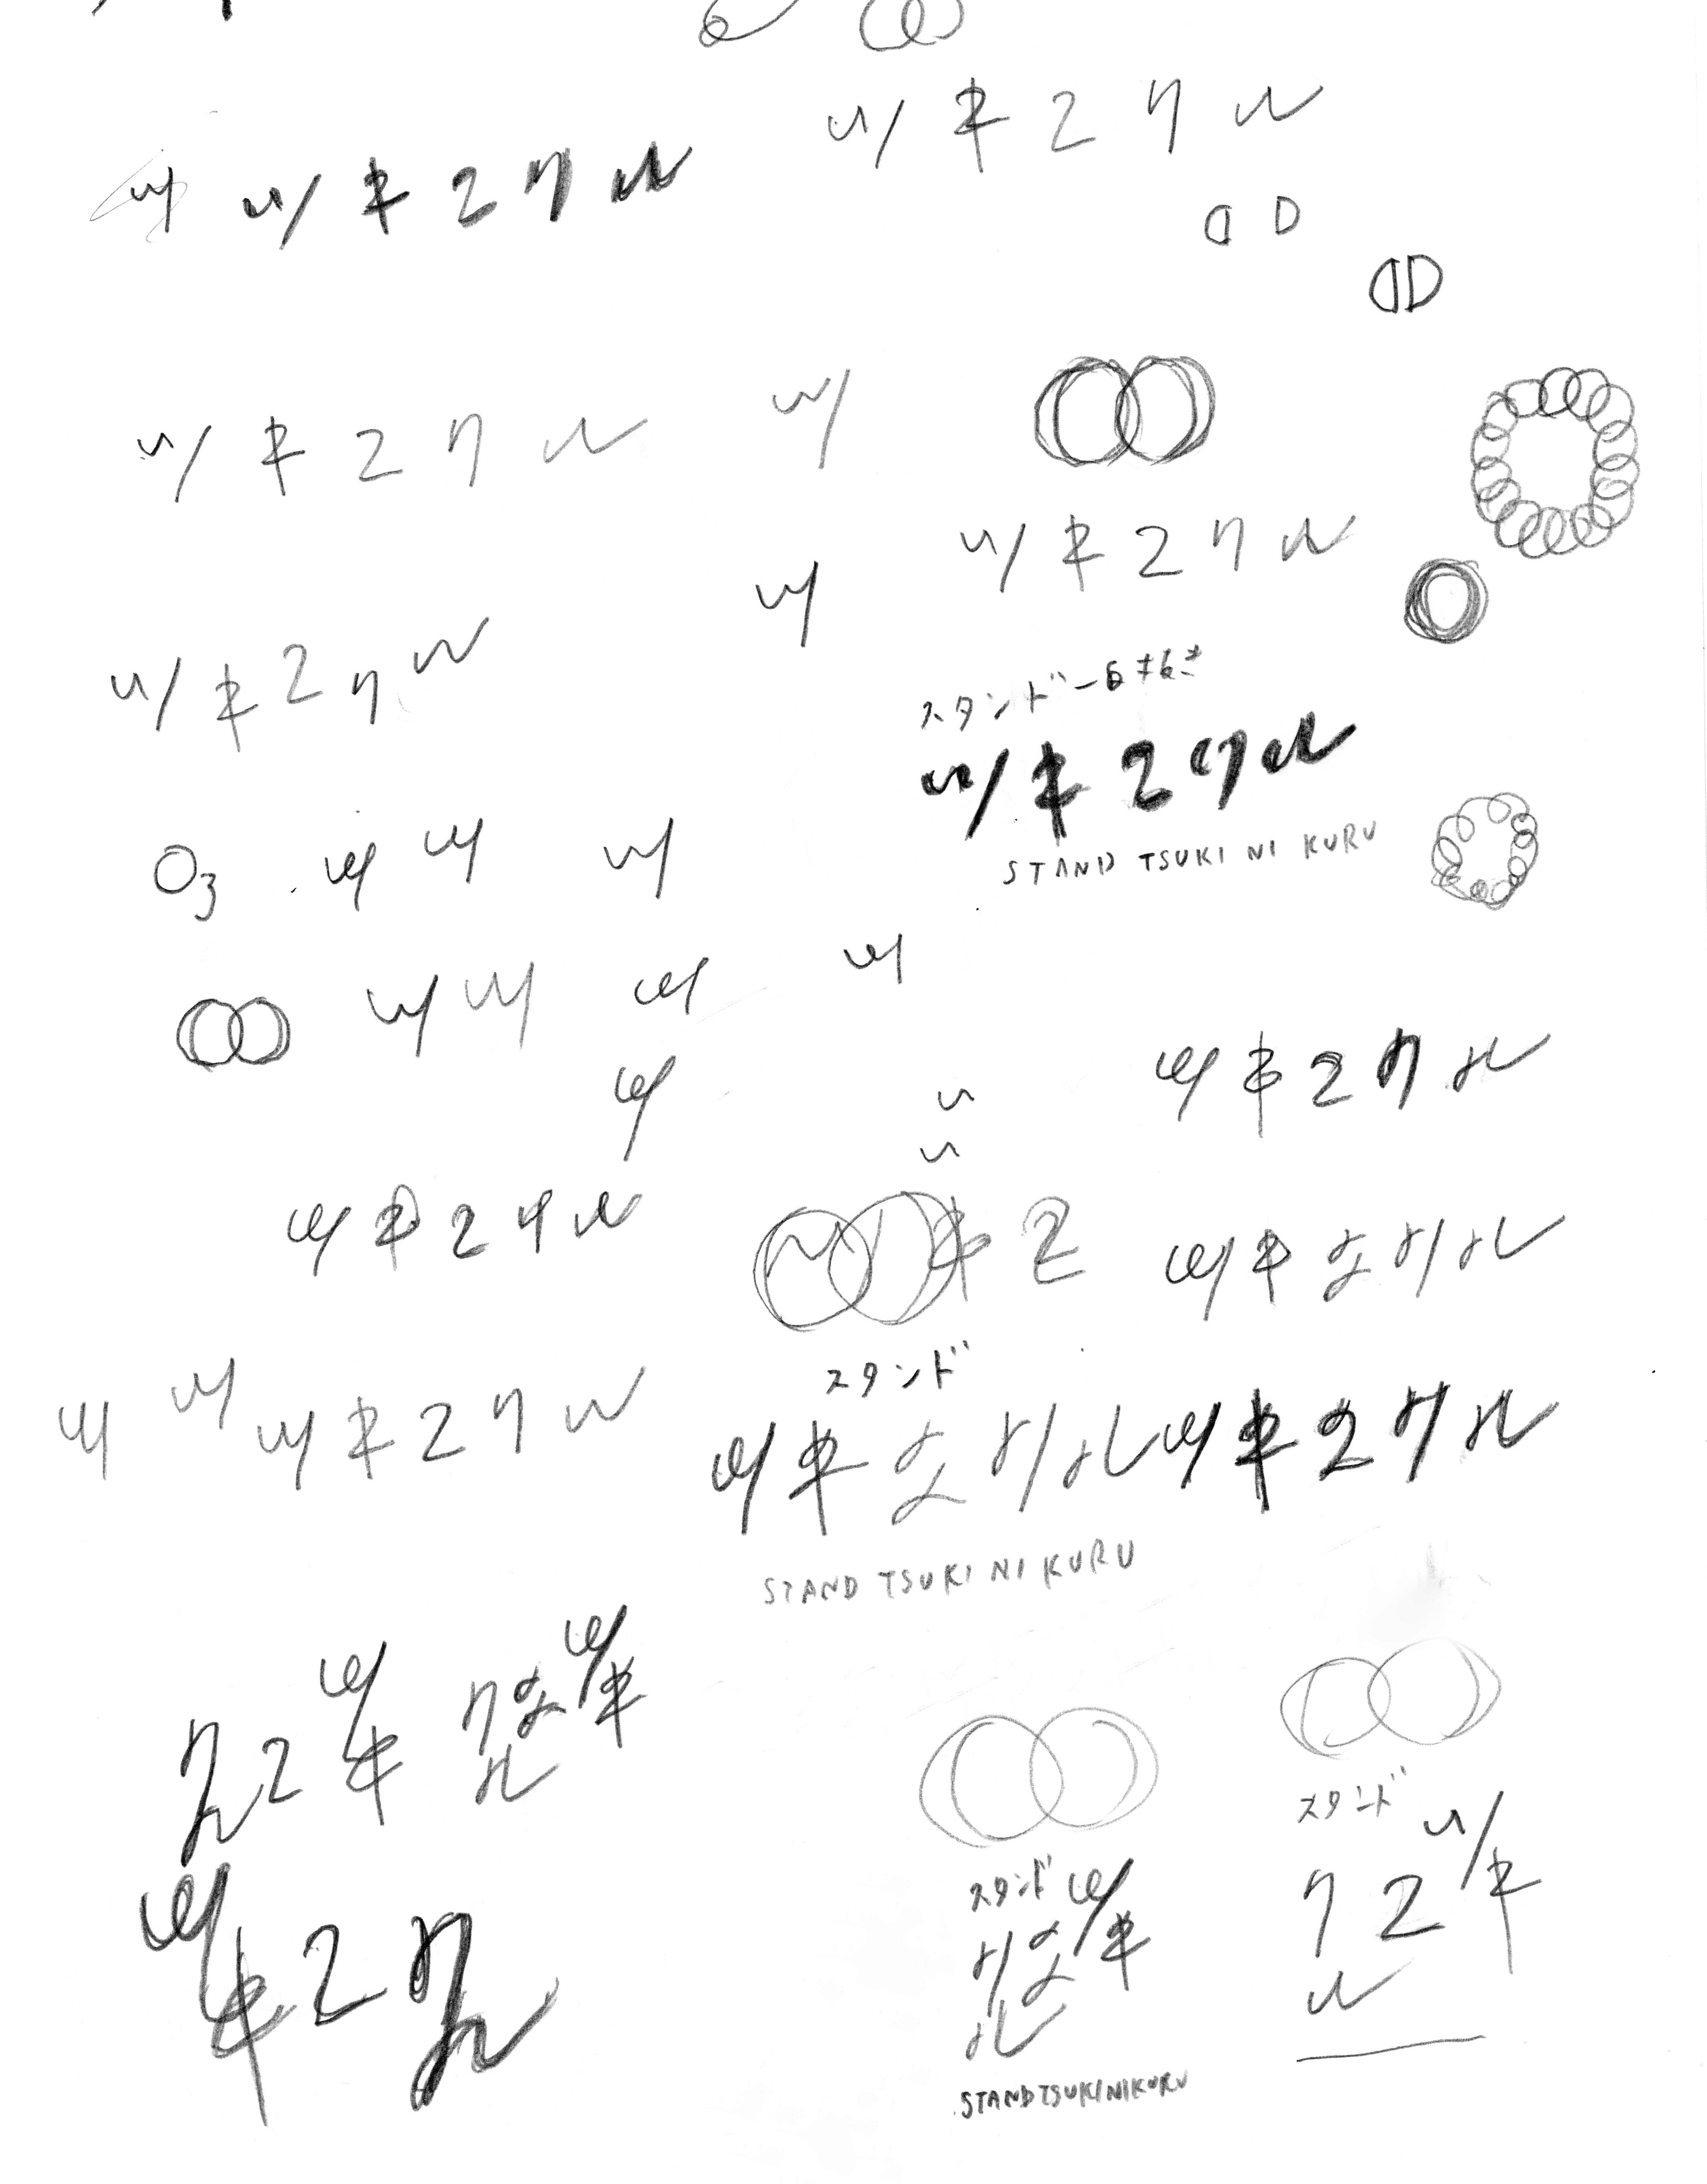 ツキニクル
ツ ツキニクル
ツ
ツキニクル
ツキニクル
ツ
ツキニクル
スタンド
ツキニクル
STAND TSUKI NI KURU
O3 ツ ツ ツ
ツ ツ ツ ツ
ツ
ツキニクル
ツキニクル
キニ
ツキニクル
スタンド
ツ ツ ツキニクル
ツキニクル ツキニクル
STAND TSUKI NI KURU
ツキニクル
ツキニクル
スタンド
ツキニクル
スタンド
ツキニクル
ツキニクル
STAND TSUKI NI KURU